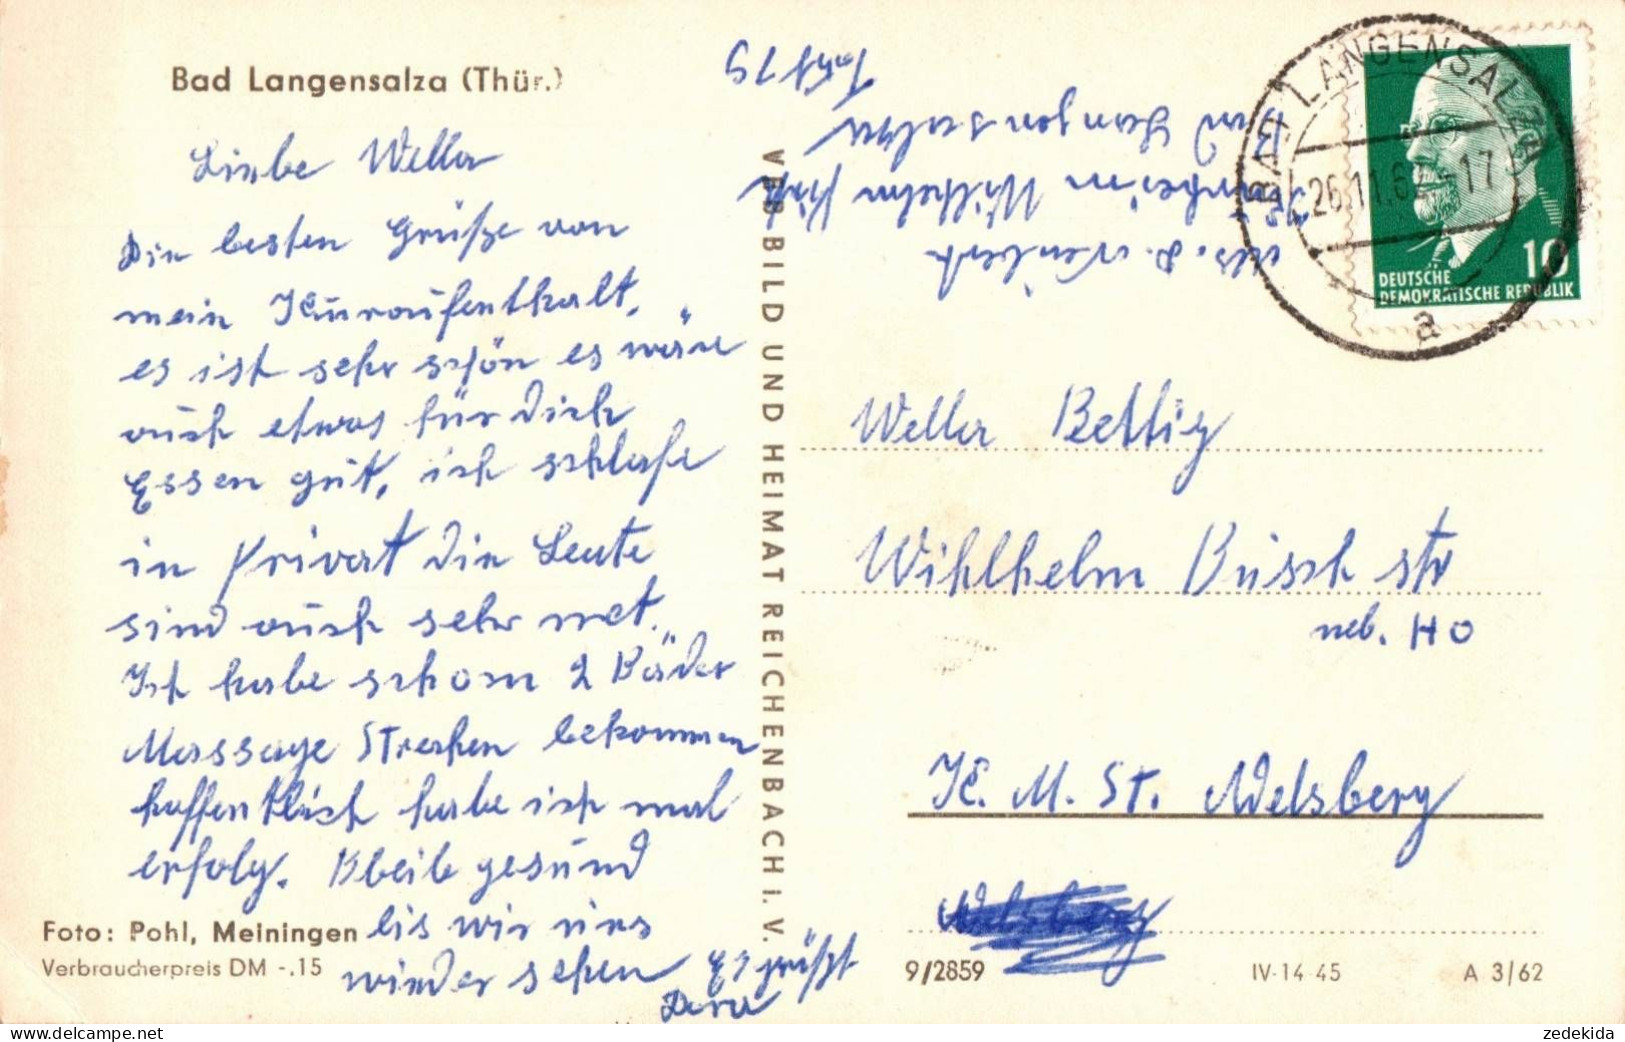 Bad Langensalza (Thür.)
Liebe Weller
Die besten Grüße von
mein Kuraufenthalt,
es ist sehr schön es wäre
auch etwas für Dich
Essen gut, ich schlafe
in Privat die Leute
sind auch sehr net.
Ich habe schom 2 Bäder
Massage Strecken bekommen
hoffentlich habe ich mal
erfolg. Bleib gesund
bis wir uns
wieder sehen
Es grüßt
Dora
Foto: Pohl, Meiningen
Verbraucherpreis DM -.15
VEB BILD UND HEIMAT REICHENBACH I. V.
Abs. D.
Kurheim Wilhelm Pick
Bad Langensalza
BAD LANGENSALZA
26.11.62-17
a
10
DEUTSCHE
DEMOKRATISCHE REPUBLIK
Weller Bettig
Wihlhelm Busch str
neb. HO
K. M. St. Adelsberg
9/2859
IV-14-45
A 3/62
zedekida